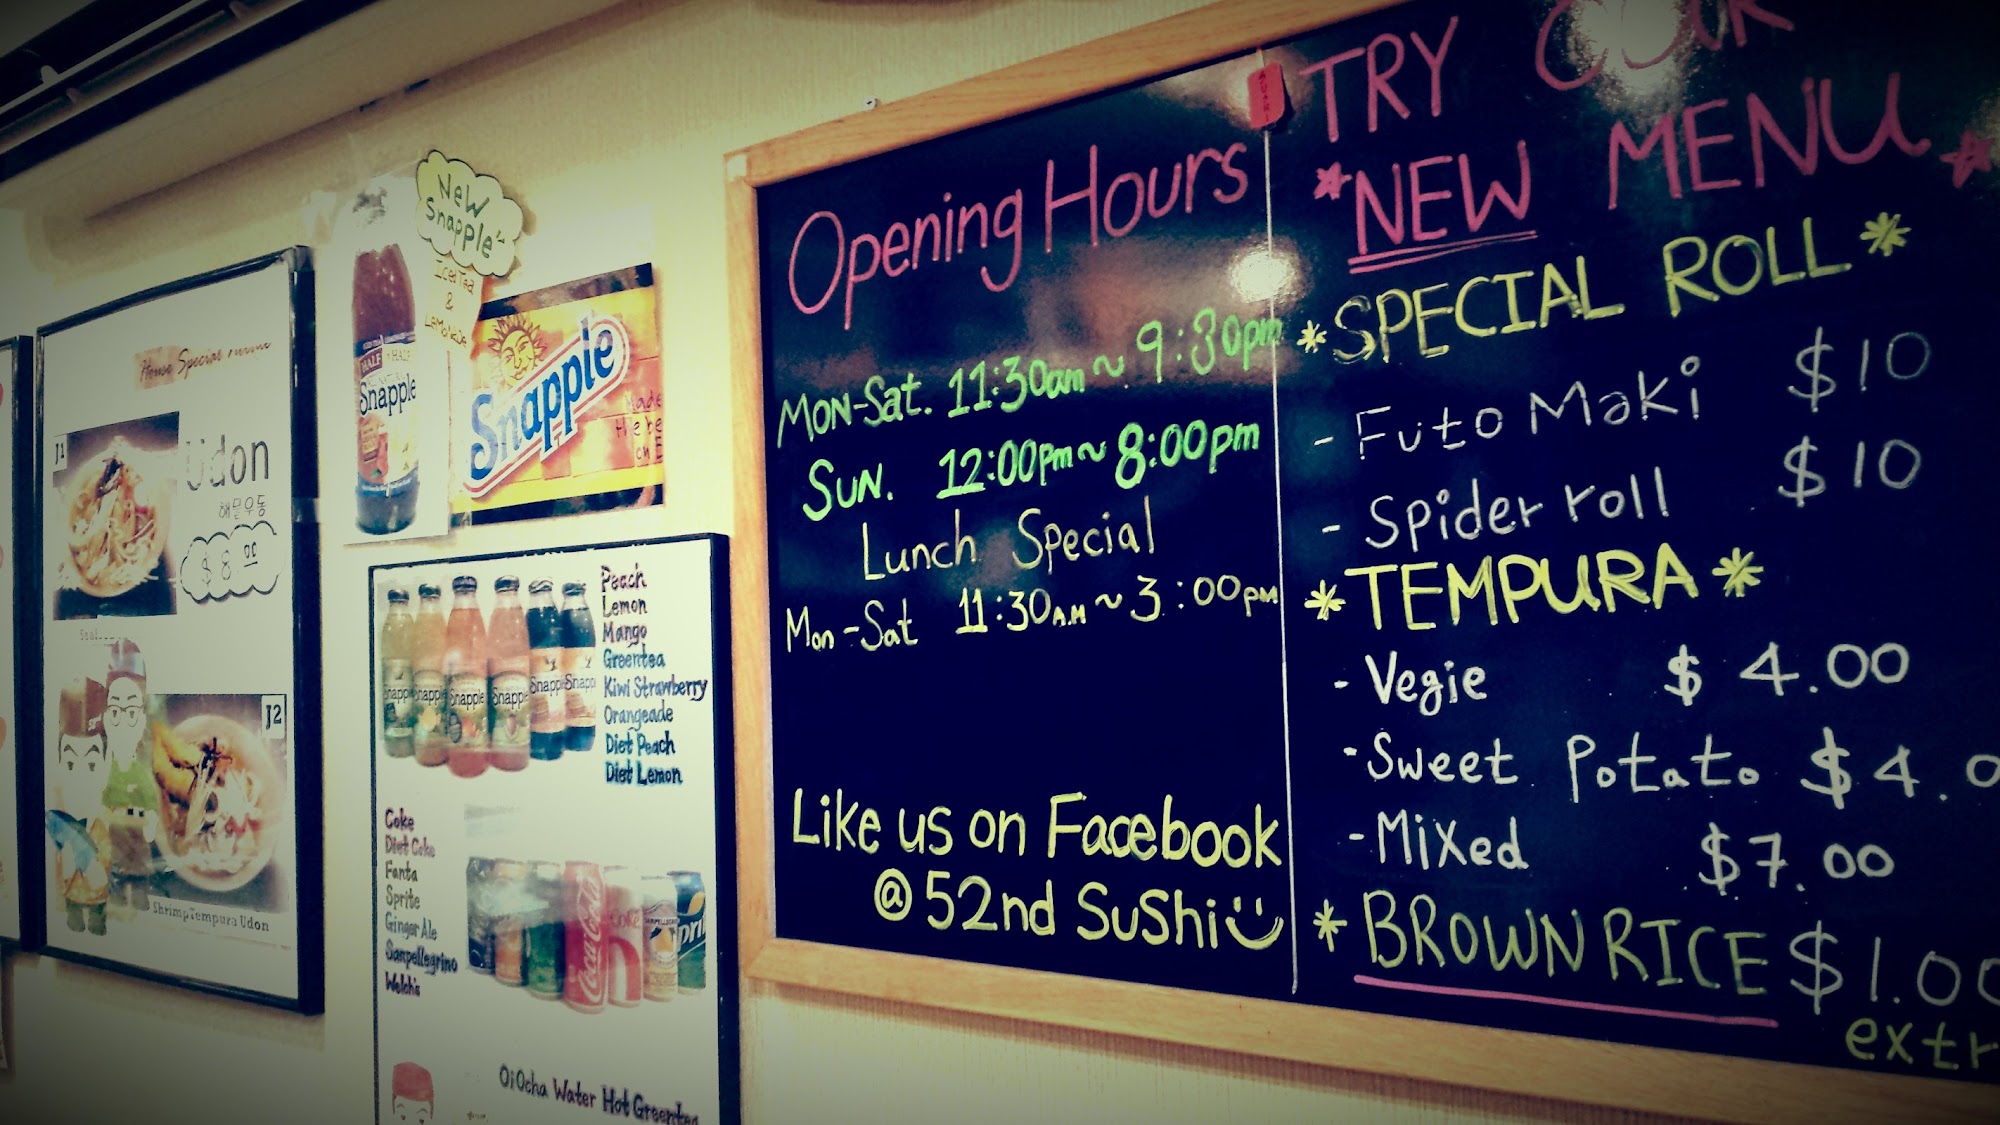 House Special menu
J1
Udon
해물우동
$8.00
J2
Shrimp Tempura Udon
New
Snapple
Iced Tea
&
Lemonade
HALF
HALF
Snapple
Snapple
Made
the be
on E
Peach
Lemon
Mango
Greentea
Kiwi Strawberry
Orangeade
Diet Peach
Diet Lemon
Snapple
Snapple
Snapple
Snapple
Snapple
Snapple
Coke
Diet Coke
Fanta
Sprite
Ginger Ale
Sanpellegrino
Welch's
Coca-Cola
Coke
Sprit
Oi Ocha Water Hot Greentea
Opening Hours
Mon-Sat. 11:30am ~ 9:30pm
Sun. 12:00pm ~ 8:00pm
Lunch Special
Mon-Sat 11:30A.M ~ 3:00pm
Like us on Facebook
@ 52nd Sushi
TRY OUR
*NEW MENU*
*SPECIAL ROLL*
- Futo Maki $10
- Spider roll $10
*TEMPURA*
- Vegie $4.00
- Sweet Potato $4.0
- Mixed $7.00
* BROWN RICE $1.00
extr